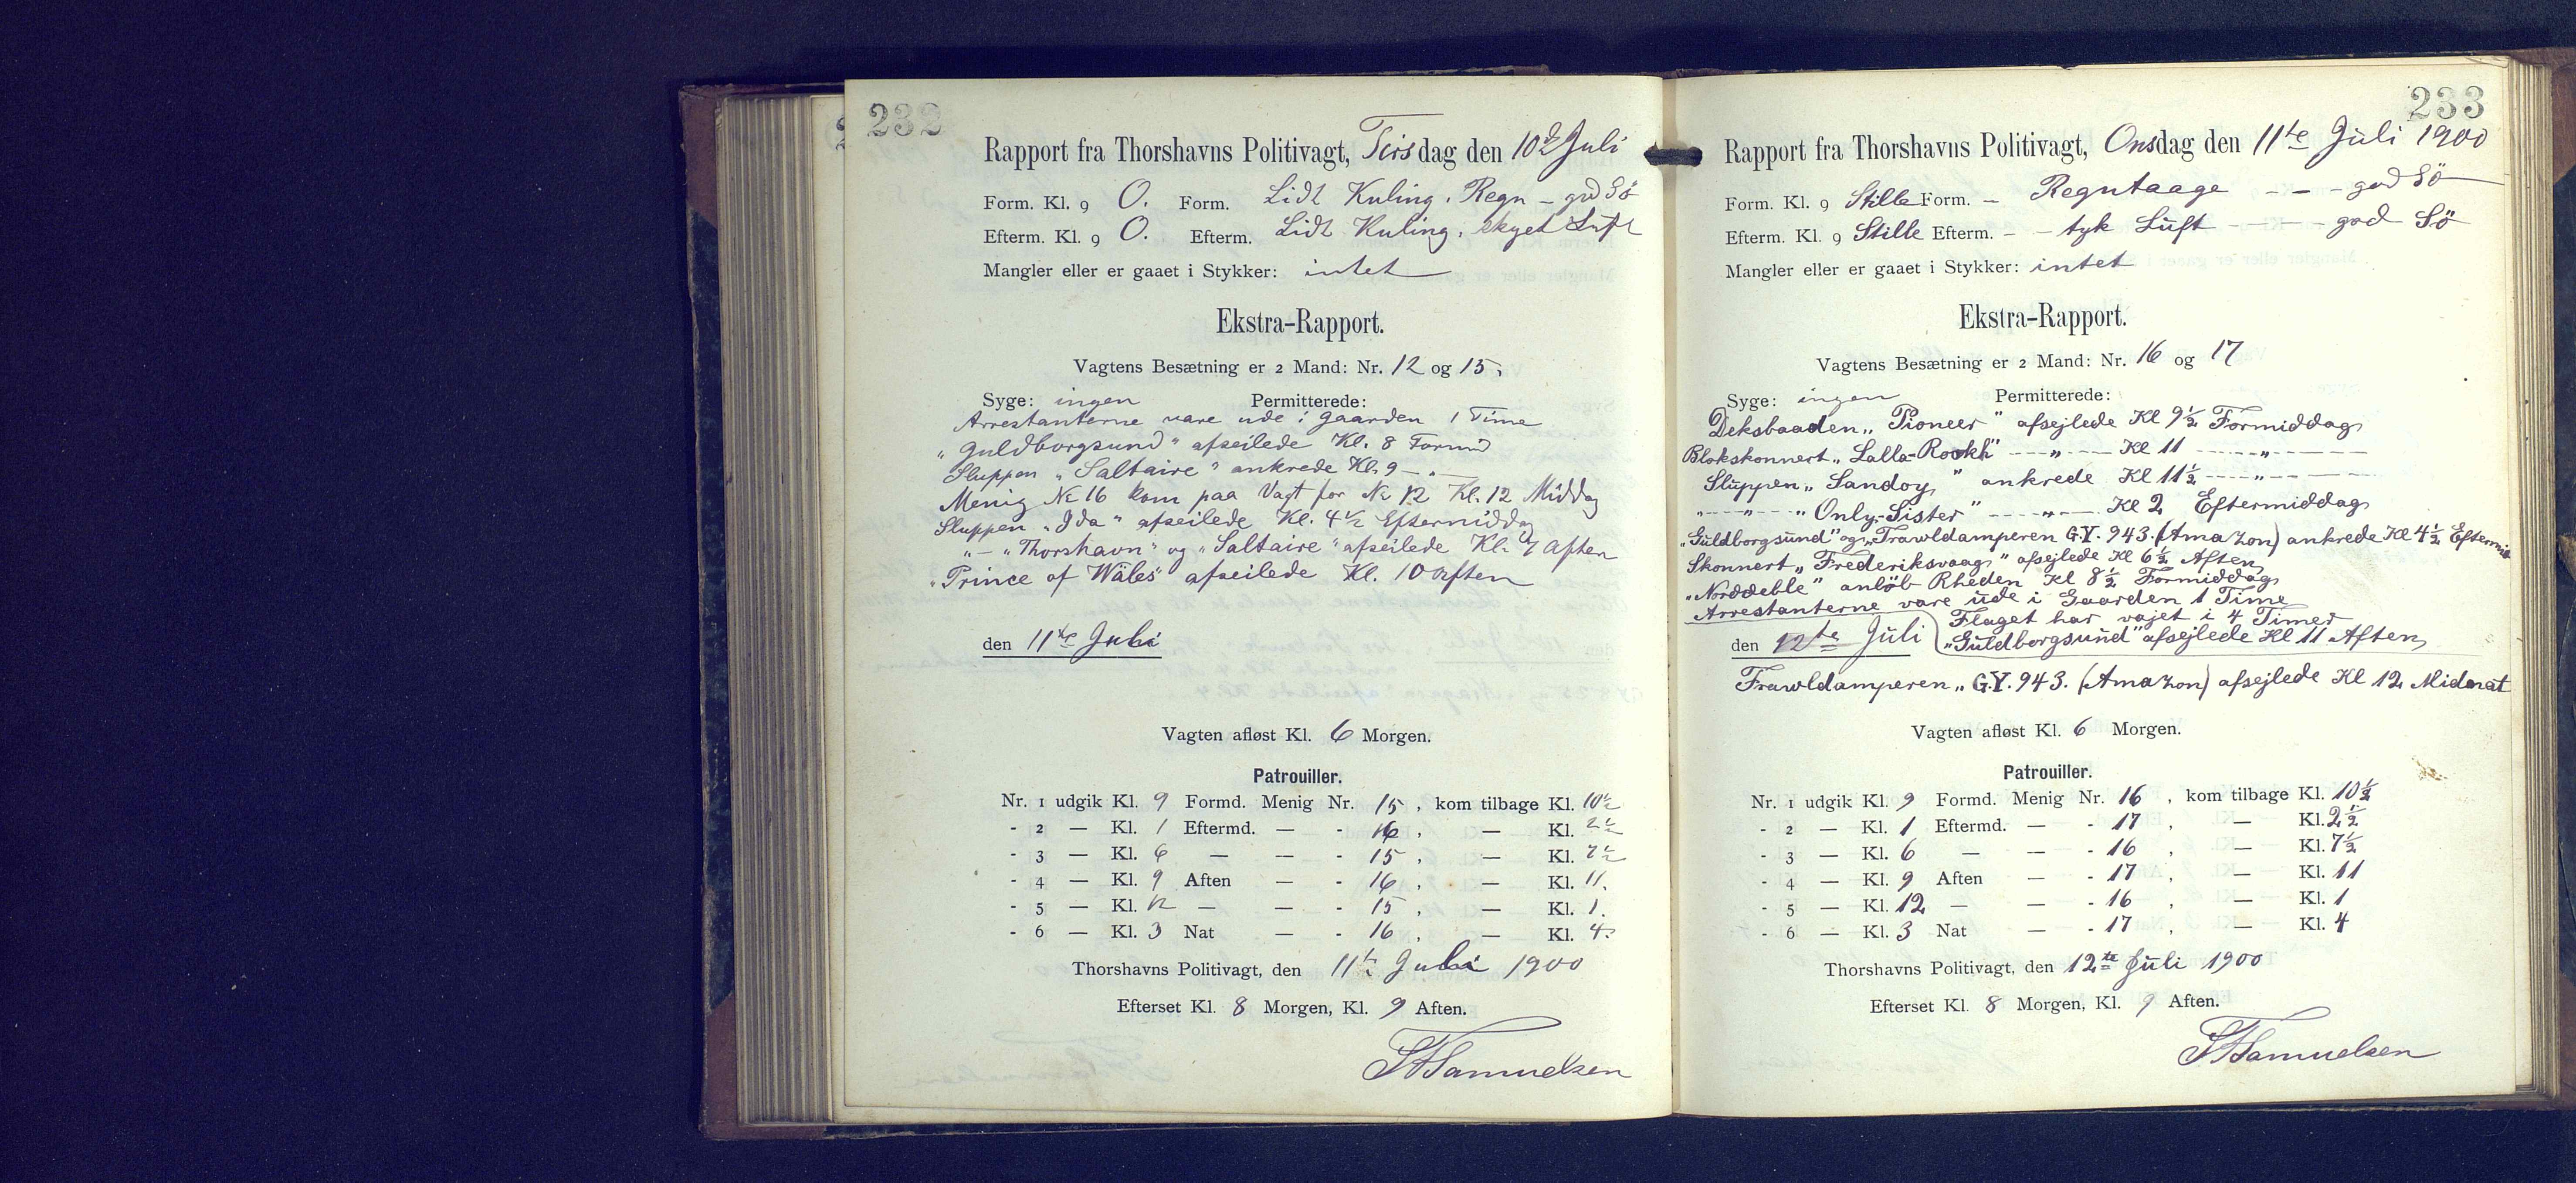 232
Rapport fra Thorshavns Politivagt, Tirsdag den 10de Juli
Form. Kl. 9 O. Form. Lidt Kuling. Regn - god Sö
Efterm. Kl. 9 O. Efterm. Lidt Kuling. skyet Luft
Mangler eller er gaaet i Stykker: intet
Ekstra-Rapport.
Vagtens Besætning er 2 Mand: Nr. 12 og 15.
Syge: ingen Permitterede:
Arrestanterne vare ude i Gaarden 1 Time
"Guldborgsund" afseilede Kl. 8 Formd
Sluppen "Saltaire" ankrede Kl. 9 - " -
Menig No 16 kom paa Vagt for No 12 Kl. 12 Middag
Sluppen "Ida" afseilede Kl. 4½ Eftermiddag
" - "Thorshavn" og "Saltaire" afseilede Kl. 7 Aften
"Prince of Wäles" afseilede Kl. 10 Aften
den 11te Juli
Vagten afløst Kl. 6 Morgen.
Patrouiller.
Nr. 1 udgik Kl. 9 Formd. Menig Nr. 15, kom tilbage Kl. 10½
- 2 — Kl. 1 Eftermd. — - 16, — Kl. 2½
- 3 — Kl. 6 — — - 15, — Kl. 7½
- 4 — Kl. 9 Aften — - 16, — Kl. 11.
- 5 — Kl. 12 — — - 15, — Kl. 1.
- 6 — Kl. 3 Nat — - 16, — Kl. 4.
Thorshavns Politivagt, den 11te Juli 1900
Efterset Kl. 8 Morgen, Kl. 9 Aften.
Samuelsen
233
Rapport fra Thorshavns Politivagt, Onsdag den 11te Juli 1900
Form. Kl. 9 Stille Form. - Regntaage - - - god Sö
Efterm. Kl. 9 Stille Efterm. - - tyk Luft - - - god Sö
Mangler eller er gaaet i Stykker: intet
Ekstra-Rapport.
Vagtens Besætning er 2 Mand: Nr. 16 og 17
Syge: ingen Permitterede:
Deksbaaden "Pioneer" afsejlede Kl 9½ Formiddag
Blokskonnert "Lalla-Rookh" --- " --- Kl 11 --- " ---
Sluppen "Sandoy" ankrede Kl 11½ --- " ---
" --- " --- "Only-Sister" --- " --- Kl 2 Eftermiddag
"Guldborgsund" og "Trawldamperen G.Y. 943. (Amazon) ankrede Kl 4½ Eftermid
Skonnert "Frederiksvaag" afsejlede Kl 6½ Aften
"Norddeble" anlöb Rheden Kl 8½ Formiddag
Arrestanterne vare ude i Gaarden 1 Time
Flaget har vajet i 4 Timer
den 12te Juli "Guldborgsund" afsejlede Kl 11 Aften
Trawldamperen "G.Y. 943. (Amazon) afsejlede Kl 12 Midnat
Vagten afløst Kl. 6 Morgen.
Patrouiller.
Nr. 1 udgik Kl. 9 Formd. Menig Nr. 16, kom tilbage Kl. 10½
- 2 — Kl. 1 Eftermd. — - 17, — Kl. 2½
- 3 — Kl. 6 — — - 16, — Kl. 7½
- 4 — Kl. 9 Aften — - 17, — Kl. 11
- 5 — Kl. 12 — — - 16, — Kl. 1
- 6 — Kl. 3 Nat — - 17, — Kl. 4
Thorshavns Politivagt, den 12te Juli 1900
Efterset Kl. 8 Morgen, Kl. 9 Aften.
Samuelsen